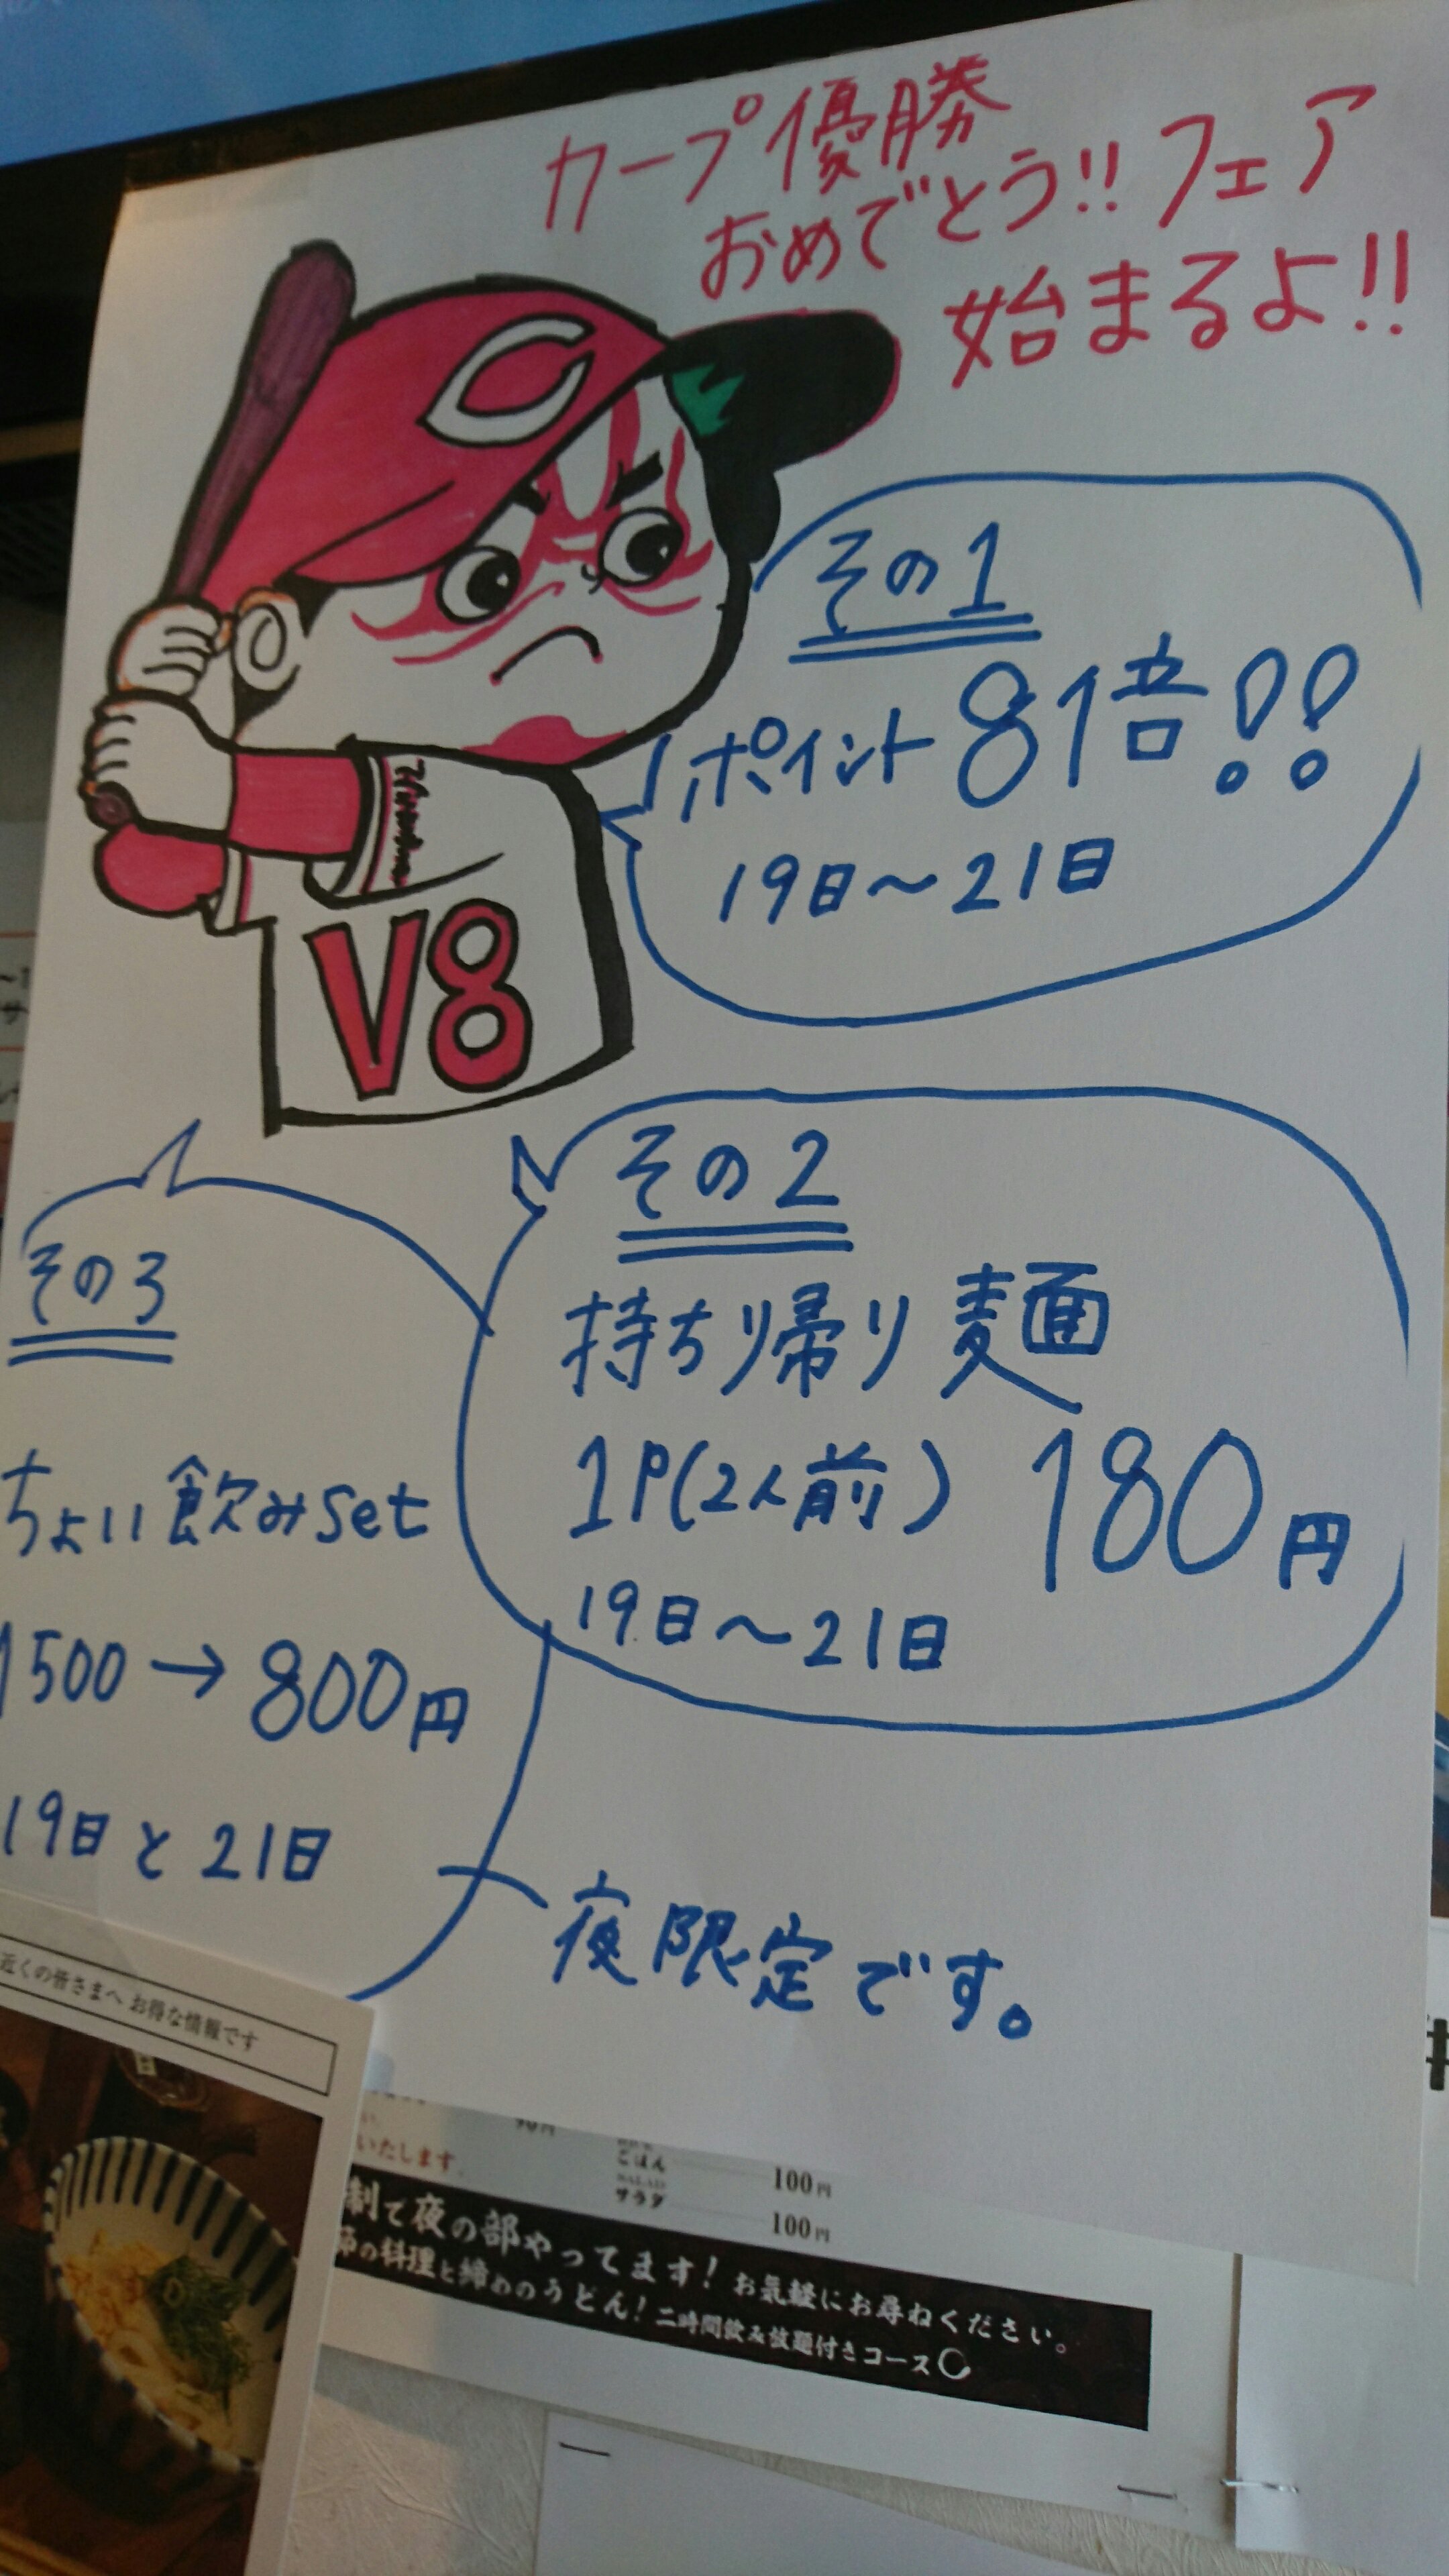 カープ優勝
おめでとう!! フェア
始まるよ!!
C
V8
その1
ポイント81倍!!
19日〜21日
その2
持ち帰り麺
1P(2人前) 180円
19日〜21日
その3
ちょい飲みset
1500→800円
19日と21日
夜限定です。
近くの皆さまへ お得な情報です
90円
いたします。
ごはん 100円
サラダ 100円
制で夜の部やってます! お気軽にお尋ねください。
節の料理と締めのうどん! 二時間飲み放題付きコース